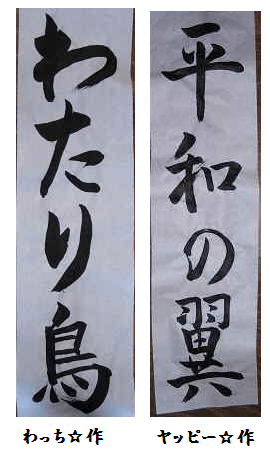 わたり鳥
平和の翼
わっち☆作
ヤッピー☆作